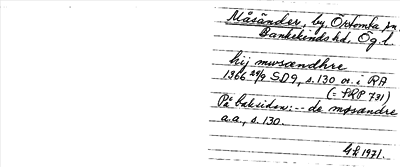 Måsänder, by, Örtomta sn,
Bankekinds hd, Ög l.
hij mwsændhre
1366 29/9 SD9, s.130 or. i RA
(= SRP 731)
På baksidan: -- de mosændre
a.a., s.130.
1971.